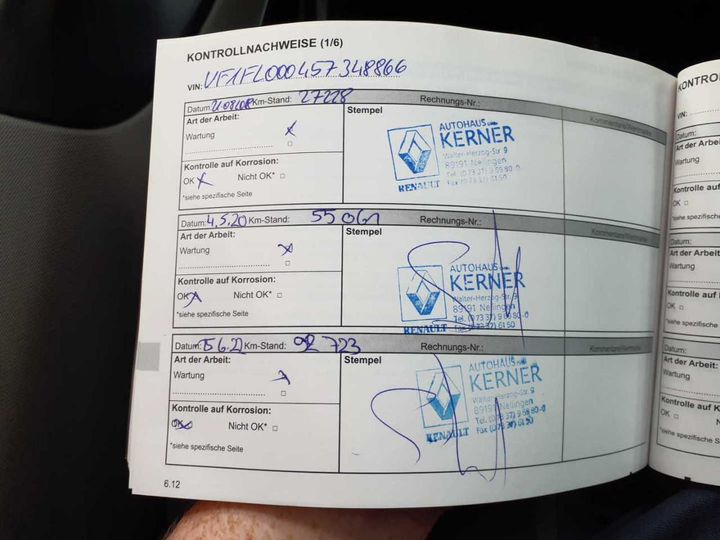 KONTROLLNACHWEISE (1/6)
VIN: VF1FL000457348866
Datum: Km-Stand: 27228 Rechnungs-Nr.: Kommentare/Vermerke
Art der Arbeit: Stempel
Wartung x
Kontrolle auf Korrosion:
OK x Nicht OK*
*siehe spezifische Seite
AUTOHAUS
KERNER
Walter-Herzog-Str. 9
89191 Nellingen
Tel. (0 73 37) 9 69 80-0
Fax (0 73 37) 61 50
RENAULT
Datum: 4.5.20 Km-Stand: 55061 Rechnungs-Nr.: Kommentare/Vermerke
Art der Arbeit: Stempel
Wartung x
Kontrolle auf Korrosion:
OK x Nicht OK*
*siehe spezifische Seite
AUTOHAUS
KERNER
Walter-Herzog-Str. 9
89191 Nellingen
Tel. (0 73 37) 9 69 80-0
Fax (0 73 37) 61 50
RENAULT
Datum: Km-Stand: 92 723 Rechnungs-Nr.: Kommentare/Vermerke
Art der Arbeit: Stempel
Wartung x
Kontrolle auf Korrosion:
OK Nicht OK*
*siehe spezifische Seite
AUTOHAUS
KERNER
Walter-Herzog-Str. 9
89191 Nellingen
Tel. (0 73 37) 9 69 80-0
Fax (0 73 37) 61 50
RENAULT
6.12
KONTRO
VIN:
Datum:
Art der Arbe
Wartung
Kontrolle auf
OK
*siehe spezifisc
Datum:
Art der Arbei
Wartung
Kontrolle auf I
OK
*siehe spezifisch
Datum:
Art der Arbeit:
Wartung
Kontrolle auf Ko
OK
*siehe spezifische